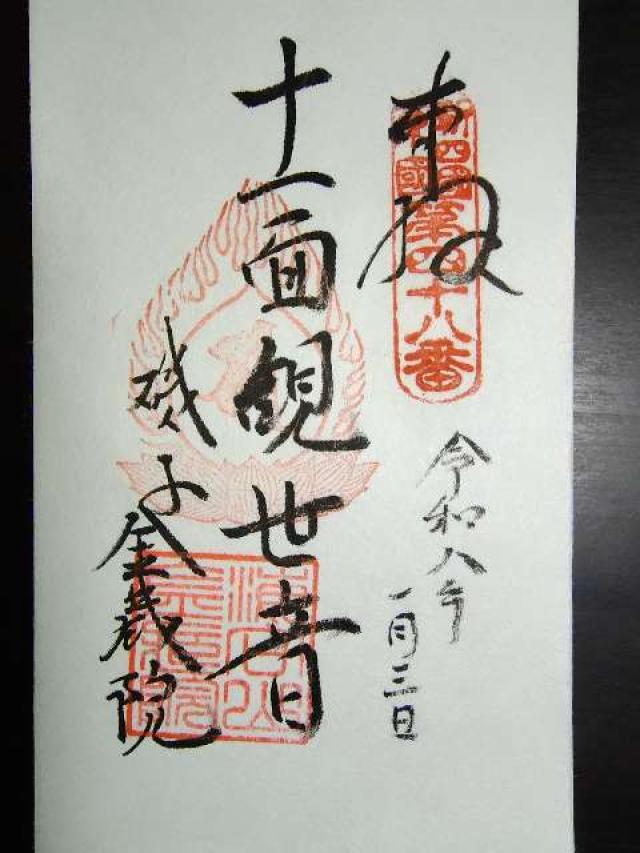 奉拝
新四国第四十八番
令和八年
一月三日
十一面観世音
磯子金蔵院